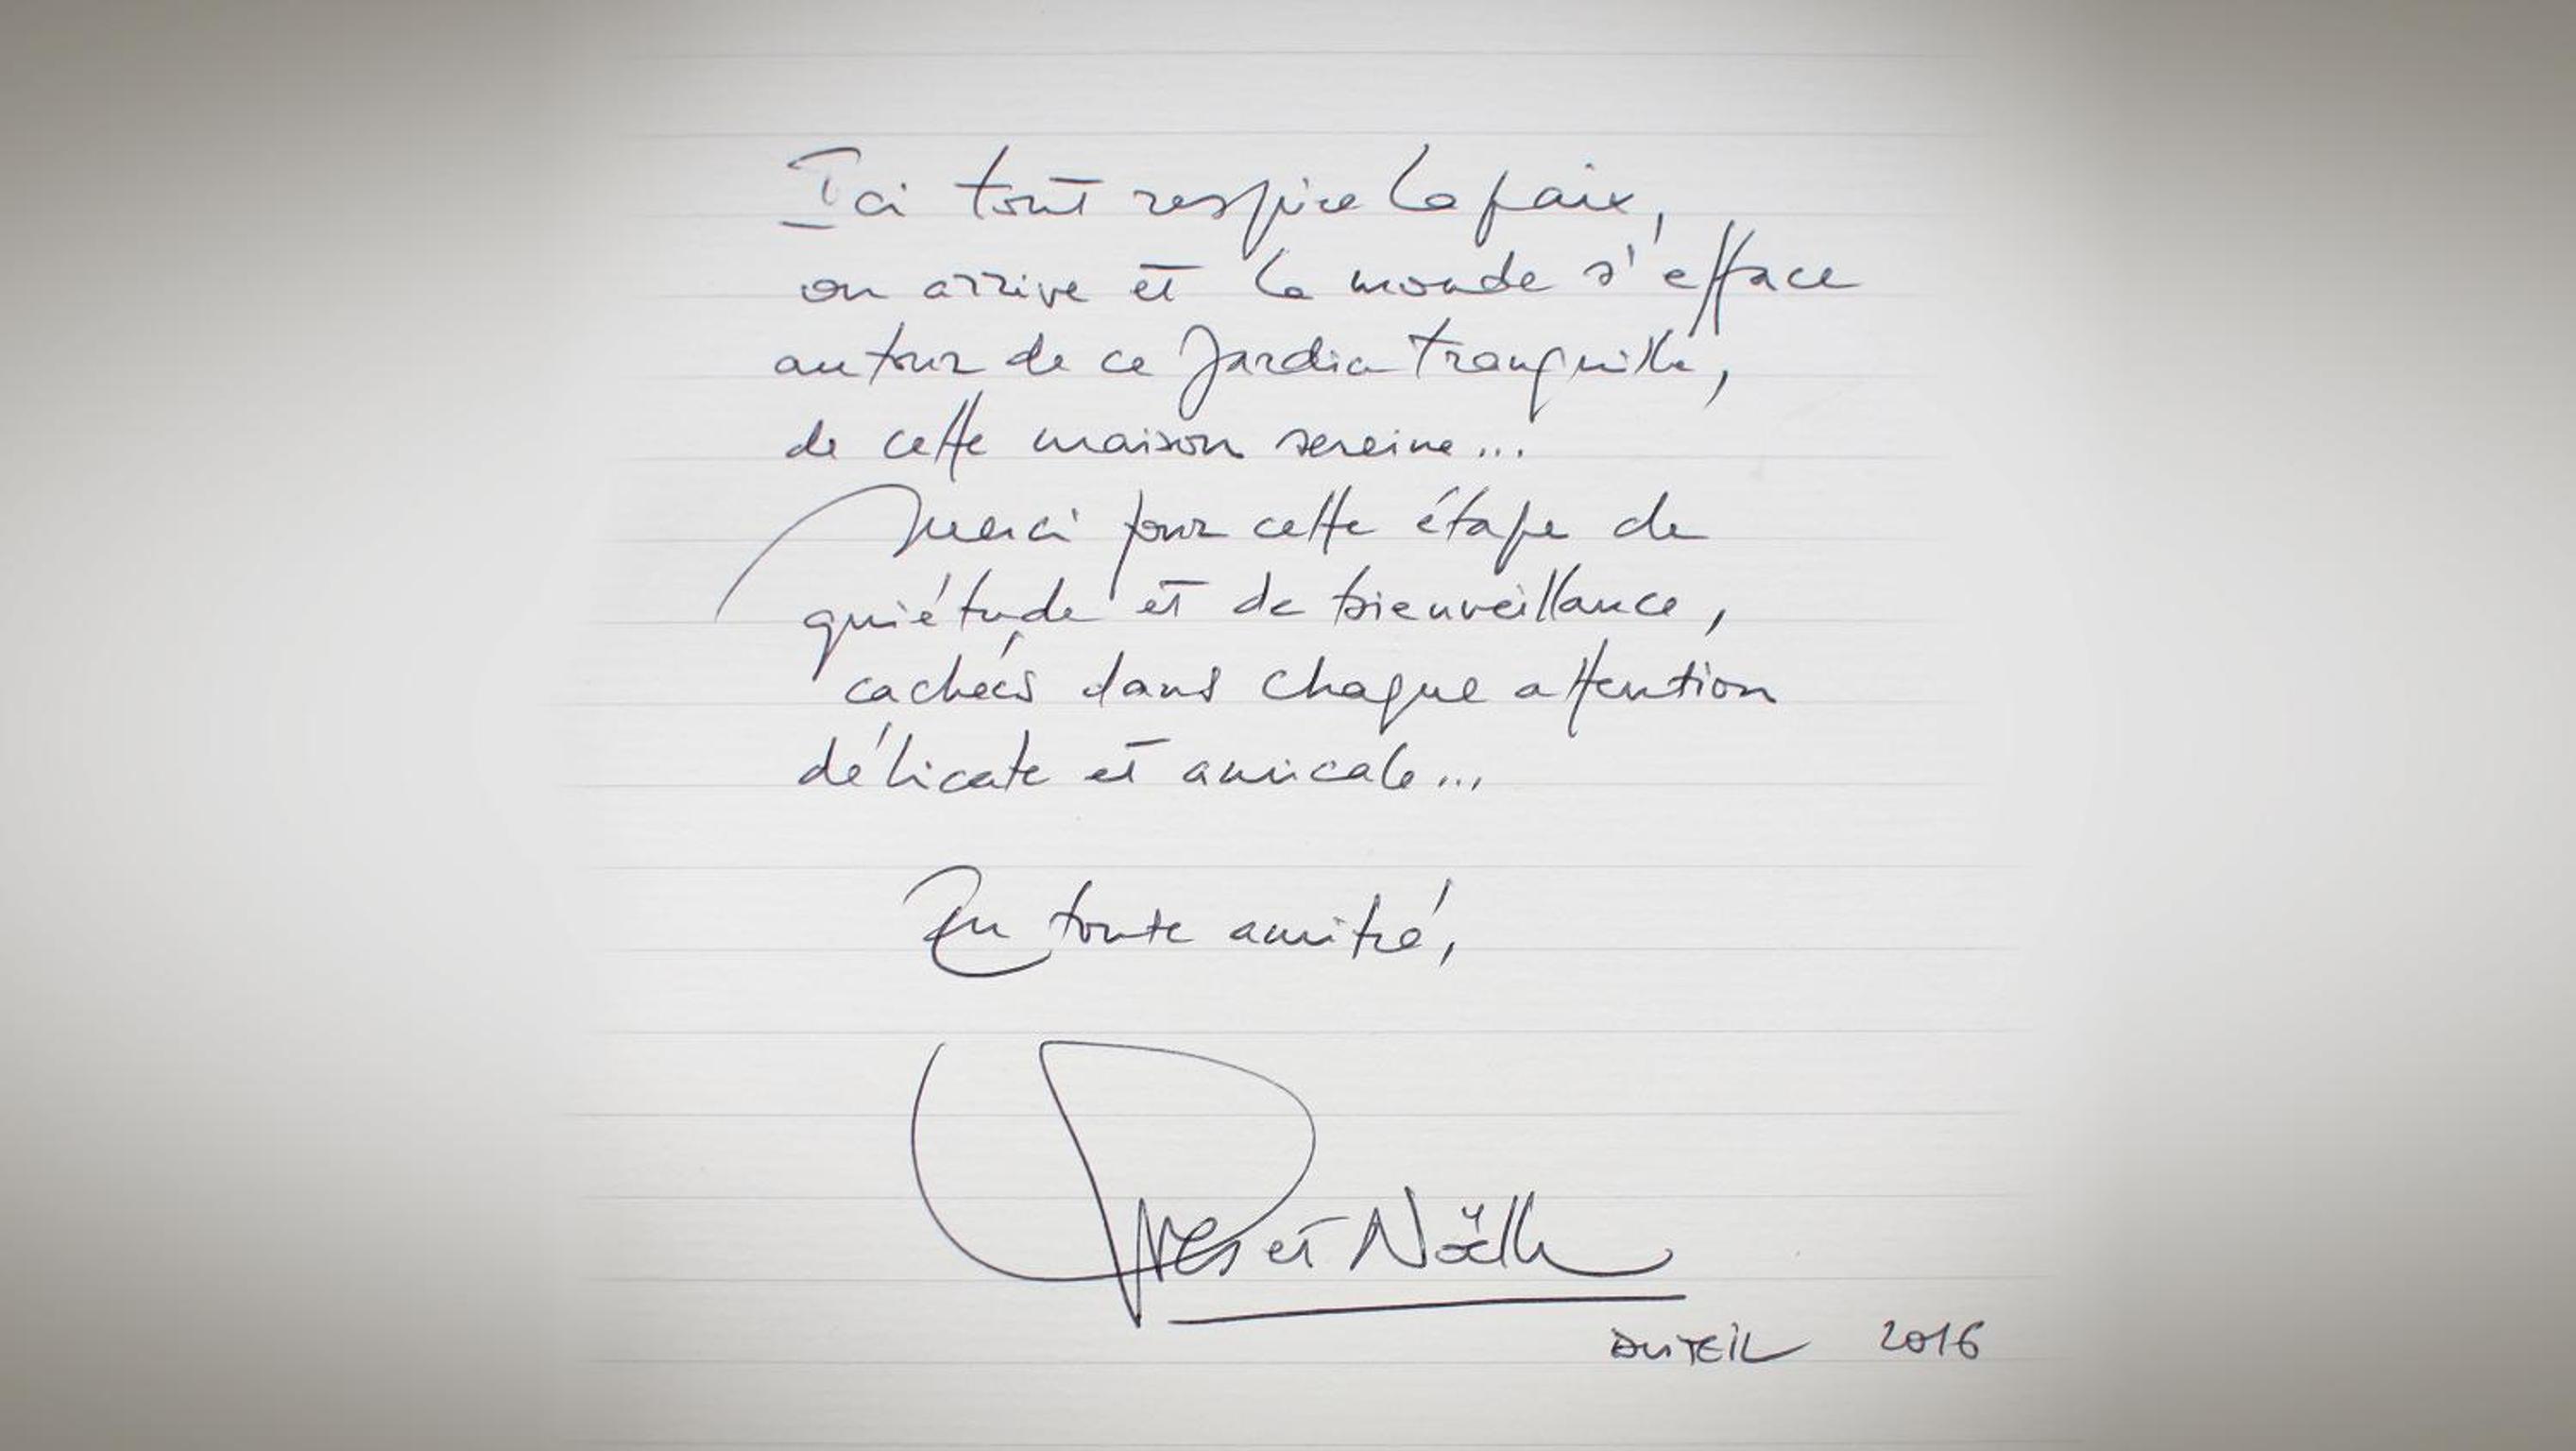 Ici tout respire la paix,
on arrive et le monde s'efface
autour de ce Jardin tranquille,
de cette maison sereine...
Merci pour cette étape de
quiétude et de bienveillance,
cachées dans chaque attention
délicate et amicale...
En toute amitié,
Yves et Noëlle
AUTEIL 2016